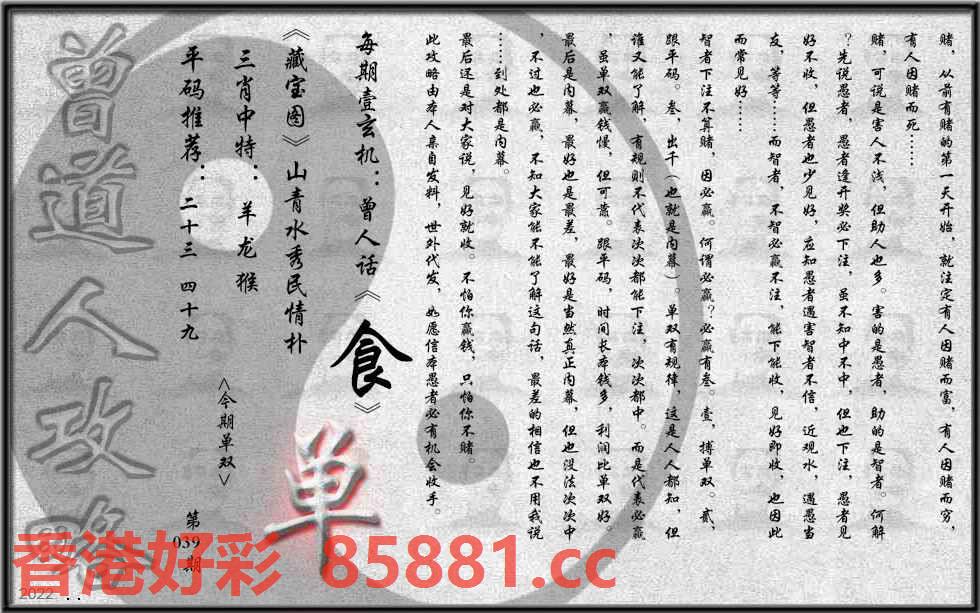 赌，从前有赌的第一天开始，就注定有人因赌而富，有人因赌而穷，
有人因赌而死……
赌，可说是害人不浅，但助人也多。害的是愚者，助的是智者。何解
？先说愚者，愚者逢开奖必下注，虽不知中不中，但也下注，愚者见
好不收，但愚者也少见好，应知愚者遇害智者不信，近观水，遇愚当
友，等等……而智者，不智必赢不注，能下能收，见好即收，也因此
而常见好……
智者下注不算赌，因必赢。何谓必赢？必赢有叁。壹，搏单双。贰，
跟平码。叁，出千（也就是内幕）。单双有规律，这是人人都知，但
谁又能了解，有规则不代表次次都能下注，次次都中。而是代表必赢
，虽单双赢钱慢，但可靠。跟平码，时间长本钱多，利润比单双好。
最后是内幕，最好也是最差，最好是当然真正内幕，但也没法次次中
，不过也必赢，不知大家能不能了解这句话，最差的相信也不用我说
……到处都是内幕。
最后还是对大家说，见好就收。不怕你赢钱，只怕你不赌。
此攻略由本人亲自发料，世外代发，如愿信本愚者必有机会收手。
每期壹玄机：曾人话《食》
《藏宝图》山青水秀民情朴
三肖中特：羊龙猴
平码推荐：二十三 四十九
<今期单双>
单
第
039
期
曾道人攻略
香港好彩 85881.cc
2022